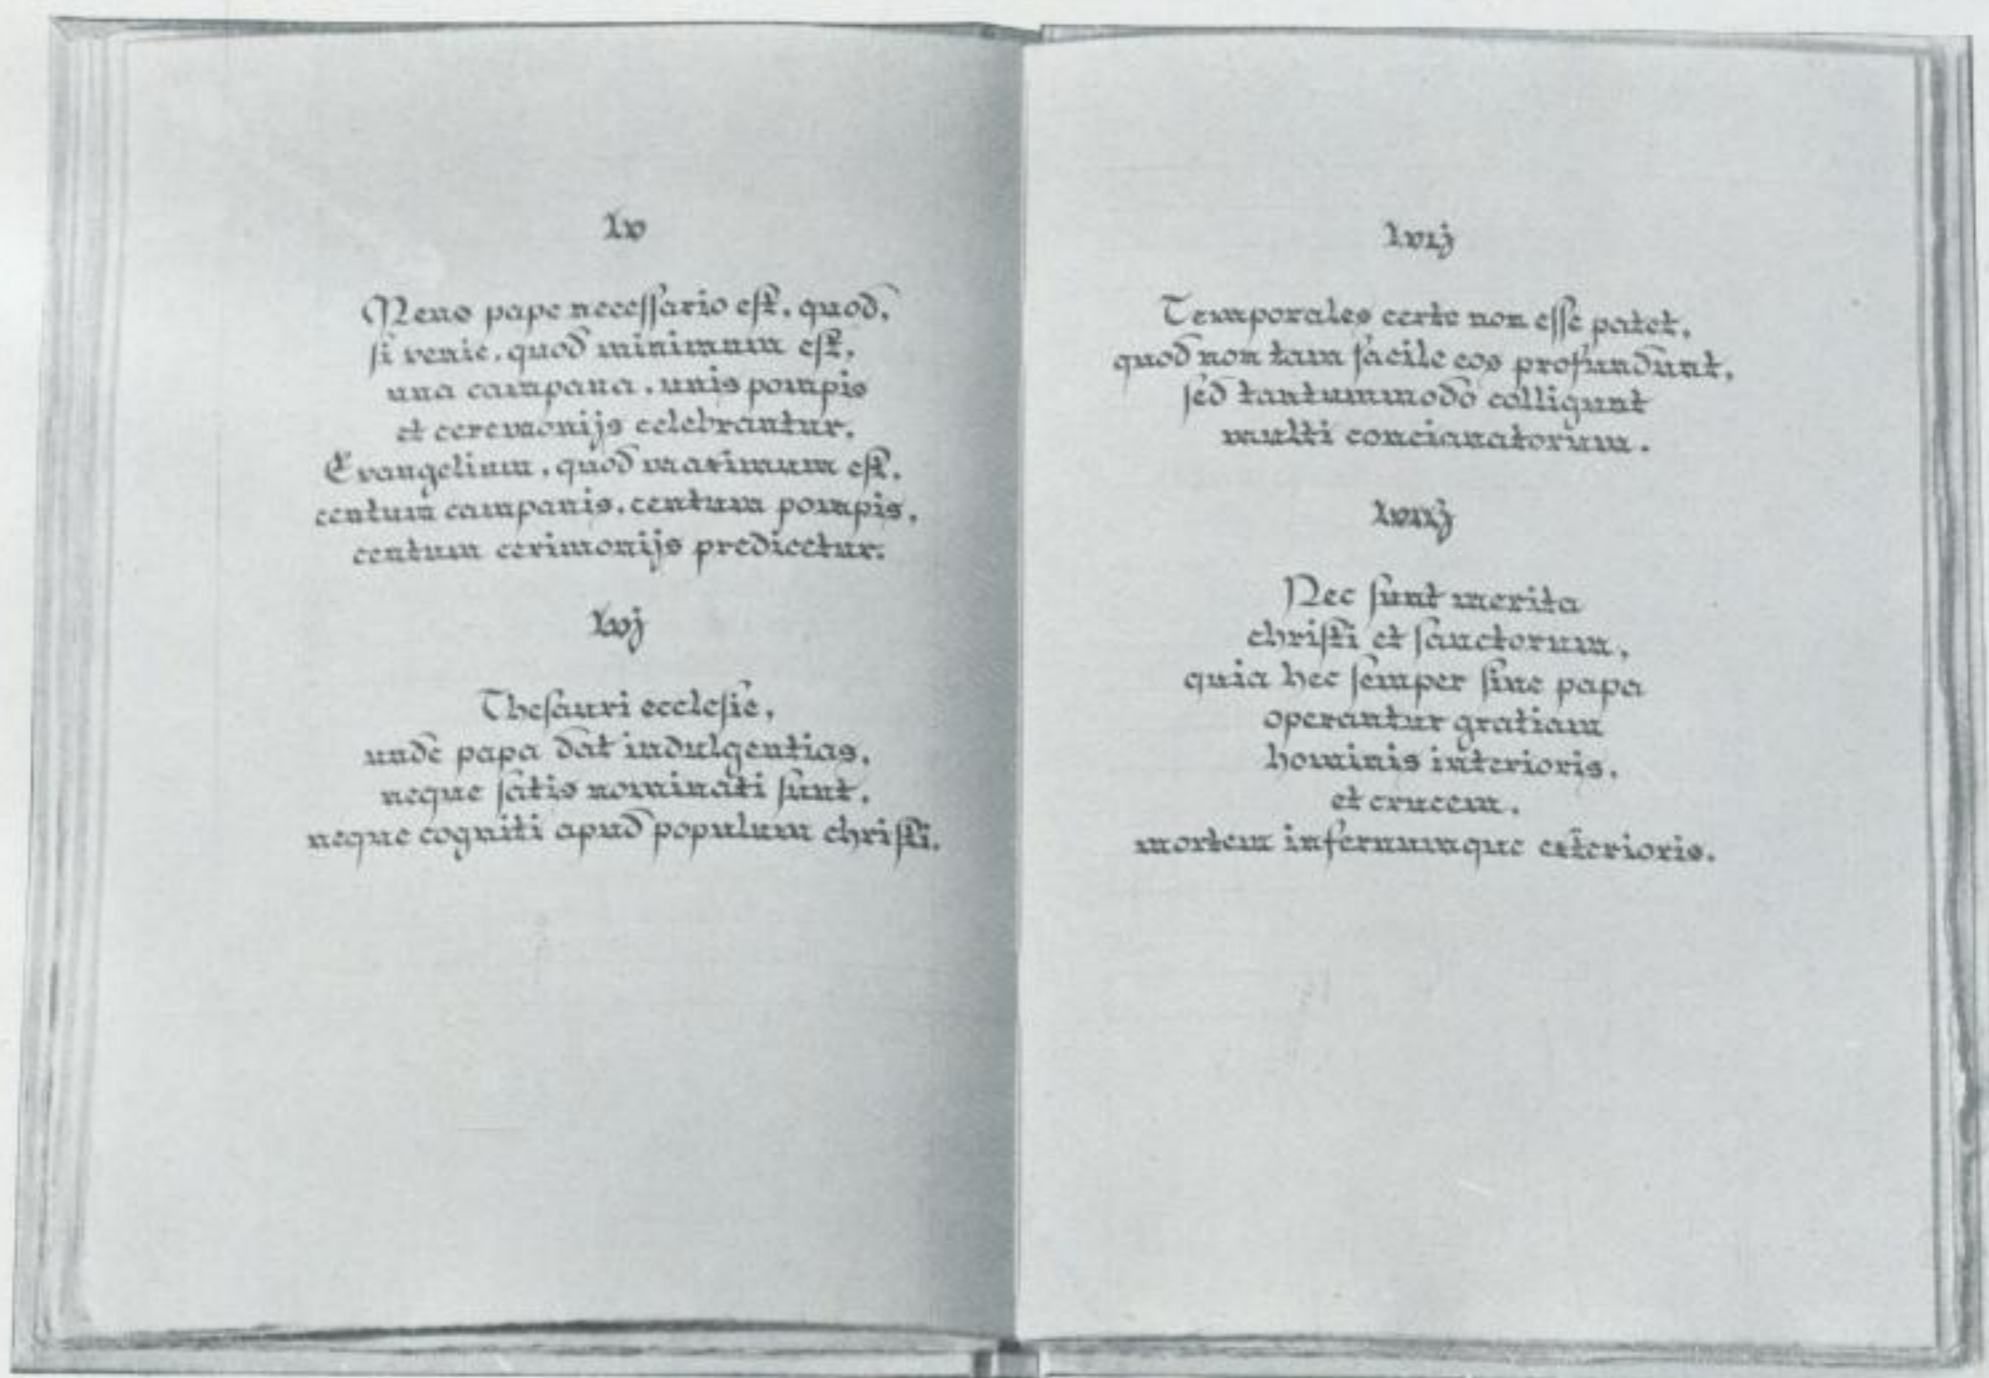 lv
Mens pape necessario est, quod,
si venie, quod minimum est,
una campana, unis pompis
et ceremonijs celebrantur,
Evangelium, quod maximum est,
centum campanis, centum pompis,
centum cerimonijs predicetur.
lvj
Thesauri ecclesie,
unde papa dat indulgentias,
neque satis nominati sunt,
neque cogniti apud populum christi.
lvij
Temporales certe non esse patet,
quod non tam facile eos profundunt,
sed tantummodo colligunt
multi concionatorum.
lviij
Nec sunt merita
christi et sanctorum,
quia hec semper sine papa
operantur gratiam
hominis interioris,
et crucem,
mortem infernumque exterioris.